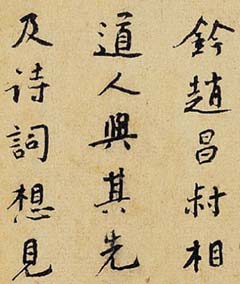 鈐趙昌叔相
道人與其先
及詩詞想見